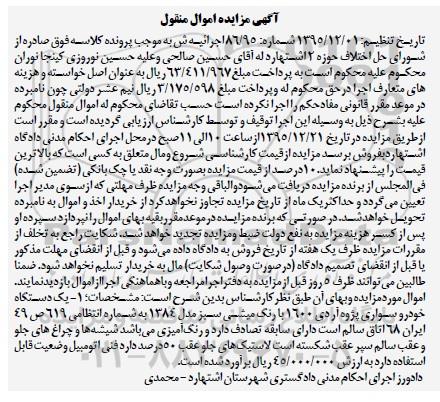 آگهی مزایده اموال منقول
تاریخ تنظیم: ۱۳۹۵/۱۲/۰۱ شماره: ۸۶/۹۵ اجرائیه ش به موجب پرونده کلاسه فوق صادره از
شورای حل اختلاف حوزه ۲ اشتهارد له آقای حسین صالحی و علیه حسین نوروزی کینجا نوران
محکوم علیه محکوم است به پرداخت مبلغ ۶۳/۴۱۱/۹۶۷ ریال به عنوان اصل خواسته و هزینه
های متعارف اجرا در حق محکوم له و پرداخت مبلغ ۳/۱۷۵/۵۹۸ ریال نیم عشر دولتی چون نامبرده
در موعد مقرر قانونی مفاد حکم را اجرا نکرده است حسب تقاضای محکوم له اموال منقول محکوم
علیه بشرح ذیل به وسیله این اجرا توقیف و توسط کارشناس ارزیابی گردیده است و مقرر است
از طریق مزایده در تاریخ ۱۳۹۵/۱۲/۲۱ از ساعت ۱۰ الی ۱۱ صبح در محل اجرای احکام مدنی دادگاه
اشتهارد بفروش برسد مزایده از قیمت کارشناسی شروع و مال متعلق به کسی است که بالاترین
قیمت را پیشنهاد نماید. ۱۰ درصد از قیمت مزایده بصورت وجه نقد یا چک بانکی (تضمین شده)
فی المجلس از برنده مزایده دریافت می شود و الباقی وجه مزایده ظرف مهلتی که از سوی مدیر اجرا
تعیین می گردد و حداکثر یک ماه از تاریخ مزایده تجاوز نخواهد کرد از خریدار اخذ و اموال به نامبرده
تحویل خواهد شد. در صورتی که برنده مزایده در موعد مقرر بقیه بهای اموال را نپردازد سپرده او
پس از کسر هزینه مزایده به نفع دولت ضبط و مزایده تجدید خواهد شد. شکایت راجع به تخلف از
مقررات مزایده ظرف یک هفته از تاریخ فروش به دادگاه داده می شود و قبل از انقضای مهلت مذکور
یا قبل از انقضای تصمیم دادگاه (در صورت وصول شکایت) مال به خریدار تسلیم نخواهد شود. ضمنا
طالبین می توانند ظرف ۵ روز قبل از مزایده به دفتر اجرا مراجعه و باهماهنگی اجرا از اموال بازدید نمایند.
اموال مورد مزایده و بهای آن طبق نظر کارشناس بدین شرح است: مشخصات: ۱- یک دستگاه
خودرو سواری پژوه آر دی ۱۶۰۰ با رنگ میشی سبز مدل ۱۳۸۴ به شماره انتظامی ۶۱۹ ص ۴۹
ایران ۶۸ اتاق سالم است دارای سابقه تصادف دارد و رنگ آمیزی می باشد شیشه ها و چراغ های جلو
و عقب سالم سپر عقب شکسته است لاستیک های جلو عقب ۵۰ درصد دارد فنی اتومبیل وضعیت قابل
استفاده دارد به ارزش ۴۵/۰۰۰/۰۰۰ ریال برآورد شده است.
دادورز اجرای احکام مدنی دادگستری شهرستان اشتهارد - محمدی